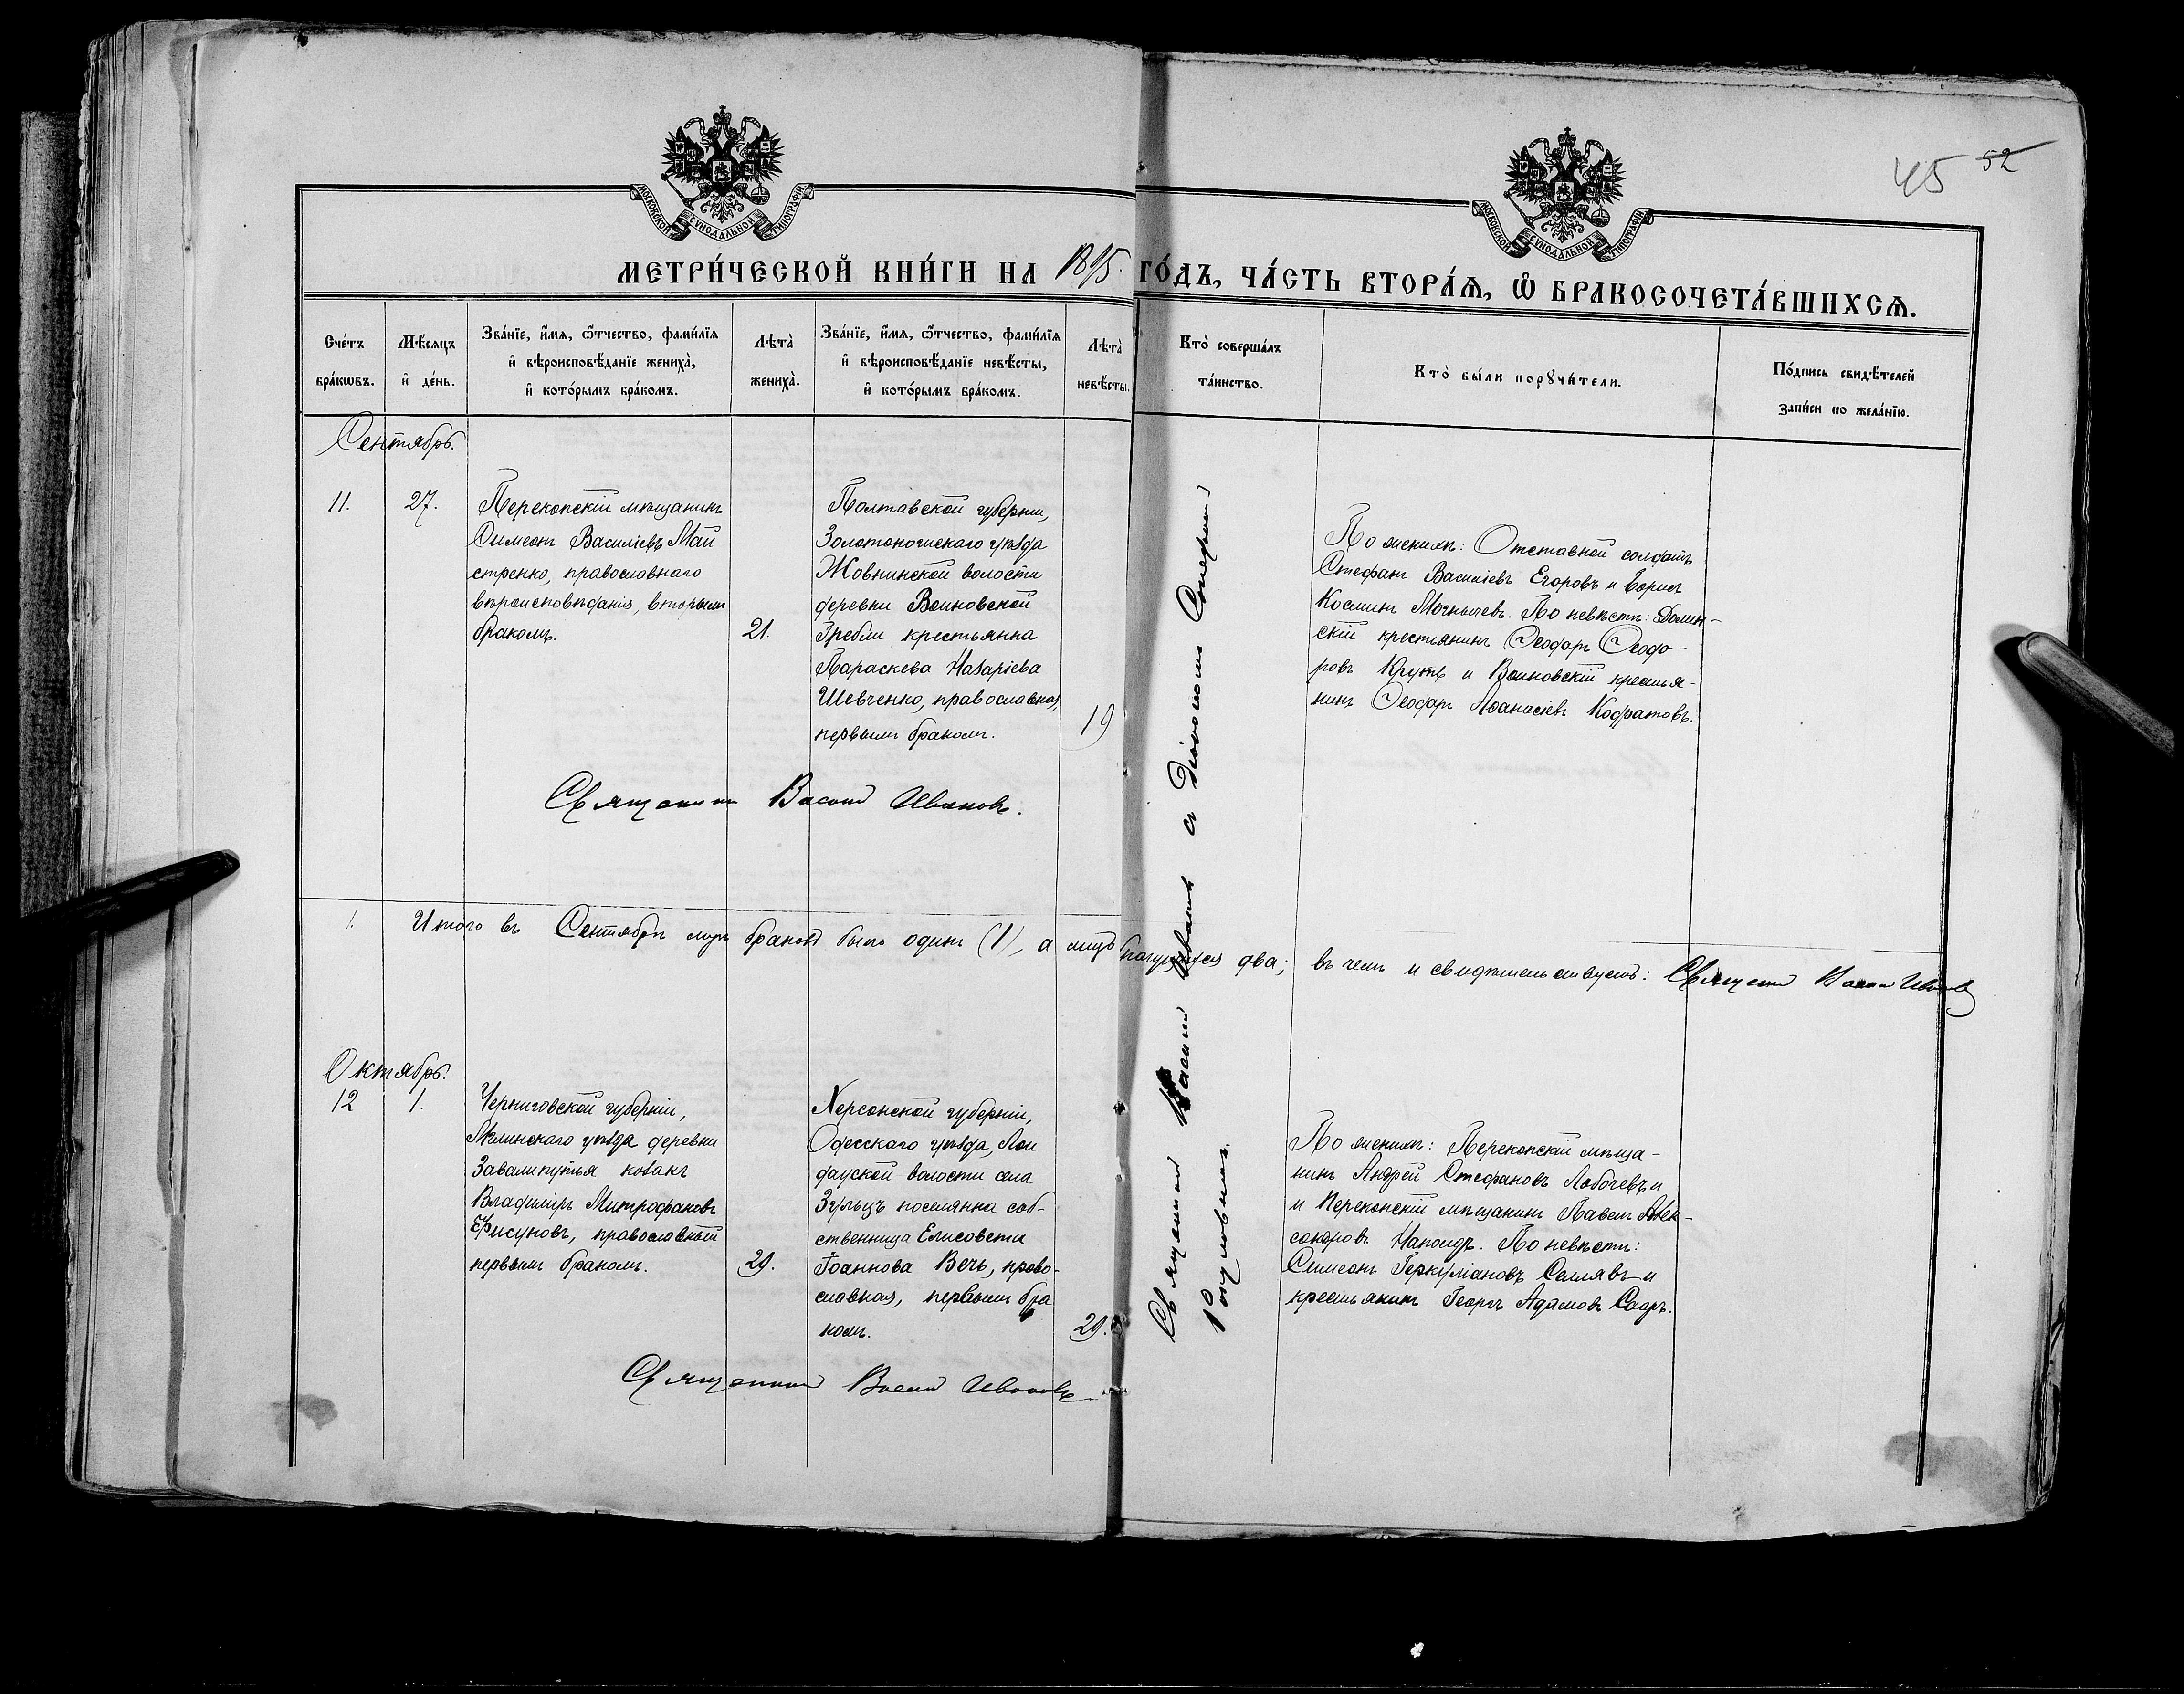 45 52
МОСКОВСКОЙ СѴНОДАЛЬНОЙ ТИПОГРАФІИ
МОСКОВСКОЙ СѴНОДАЛЬНОЙ ТИПОГРАФІИ
МЕТРИ́ЧЕСКОЙ КНИ́ГИ НА 1895. ГО́ДЪ, ЧА́СТЬ ВТОРА́Ѧ, Ѽ БРАКОСОЧЕТА́ВШИХСѦ.
Сче́тъ
бра́кѡвъ.
Мѣ́сяцъ
и҆ де́нь.
Зва́нїе, и҆́мя, ѻ҆́тчество, фами́лїя
и҆ вѣроисповѣ́данїе жениха̀,
и҆ кото́рымъ бра́комъ.
Лѣта̀
жениха̀.
Зва́нїе, и҆́мя, ѻ҆́тчество, фами́лїя
и҆ вѣроисповѣ́данїе невѣ́сты,
и҆ кото́рымъ бра́комъ.
Лѣта̀
невѣ́сты.
Кто̀ соверша́лъ
та́инство.
Кто̀ бы́ли порꙋчи́тели.
По́дпись свидѣ́телей
за́писи по жела́нїю.
Сентябрь.
11.
27.
Перекопскій мѣщанинъ
Симеонъ Василіевъ Май
стренко, православнаго
вѣроисповѣданія, вторымъ
бракомъ.
21.
Полтавской губерніи,
Золотоношскаго уѣзда
Жовнинской волости
деревни Воиновской
Гребли крестьянка
Параскева Назаріева
Шевченко, православная,
первымъ бракомъ.
19
По женихѣ: Отставной солдатъ
Стефанъ Василіевъ Егоровъ и Борисъ
Косминъ. По невѣстѣ:
скій крестьянинъ Ѳеодоръ Ѳеодо-
ровъ Крутъ и Воиновскій крестья-
нинъ Ѳеодоръ Аѳанасіевъ
Священникъ Василій Ивановъ.
Священникъ Василій Ивановъ съ Діакономъ
1. Итого въ Сентябрѣ мцѣ браковъ было одинъ (1), а лицъ два; въ чемъ и свидѣтельствуютъ: Священникъ Василій Ивановъ
Октябрь.
12
1.
Черниговской губерніи,
Мглинскаго уѣзда деревни
Завалипутья козакъ
Владиміръ Митрофановъ
Фисуновъ, православный
первымъ бракомъ.
29.
Херсонской губерніи,
Одесскаго уѣзда, Лан
дауской волости села
Зульцъ поселянка соб-
ственница Елисовета
Іоаннова Вечь, право-
славная, первымъ бра
комъ.
29.
По женихѣ: Перекопскій мѣща-
нинъ Андрей Стефановъ Лобачевъ и
и Перекопскій мѣщанинъ Павелъ Алек-
сандровъ. По невѣстѣ:
Симеонъ и
крестьянинъ Георгъ Адамовъ
Священникъ Василій Ивановъ